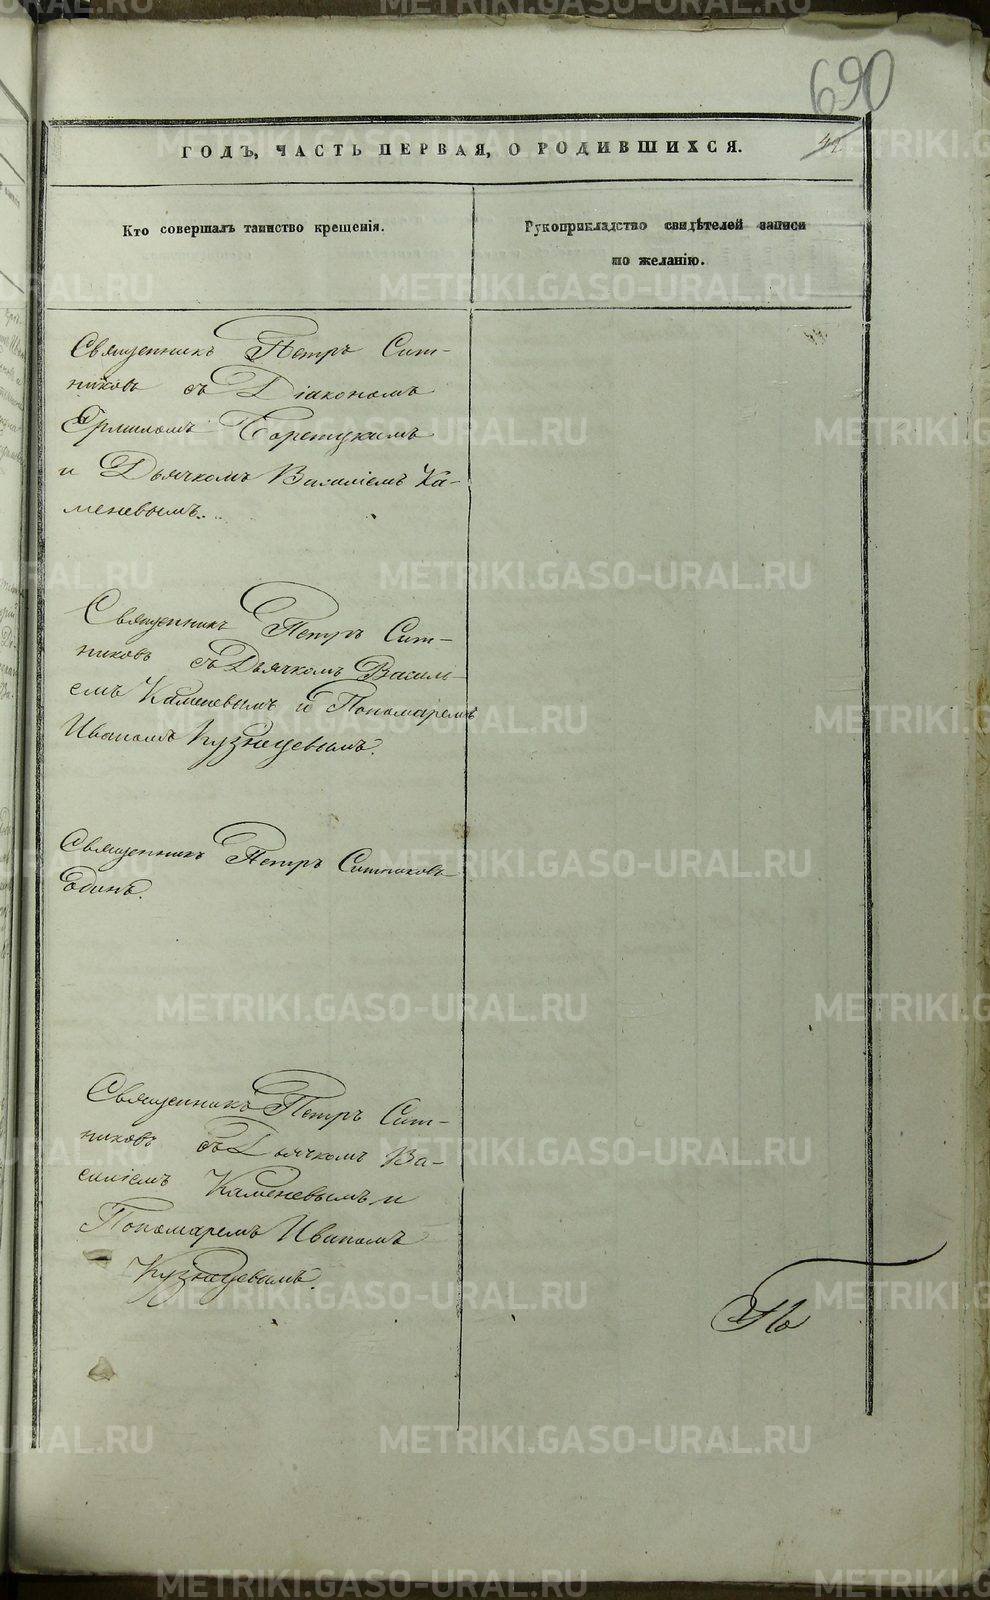 690
ГОДЪ, ЧАСТЬ ПЕРВАЯ, О РОДИВШИХСЯ.
Кто совершалъ таинство крещенія.
Рукоприкладство свидѣтелей записи
по желанію.
Священникъ Петръ Сит-
никовъ съ Діакономъ
Ермиломъ
и Дьячкомъ Василіемъ Ка-
меневымъ.
Священникъ Петръ Сит-
никовъ съ Дьячкомъ Василь­-
емъ Каменевымъ и Пономаремъ
Иваномъ Кузнецовымъ.
Священникъ Петръ Ситниковъ
Одинъ.
Священникъ Петръ Сит-
никовъ съ Дьячкомъ Ва-
силіемъ Каменевымъ и
Пономаремъ Иваномъ
Кузнецовымъ.
METRIKI.GASO-URAL.RU